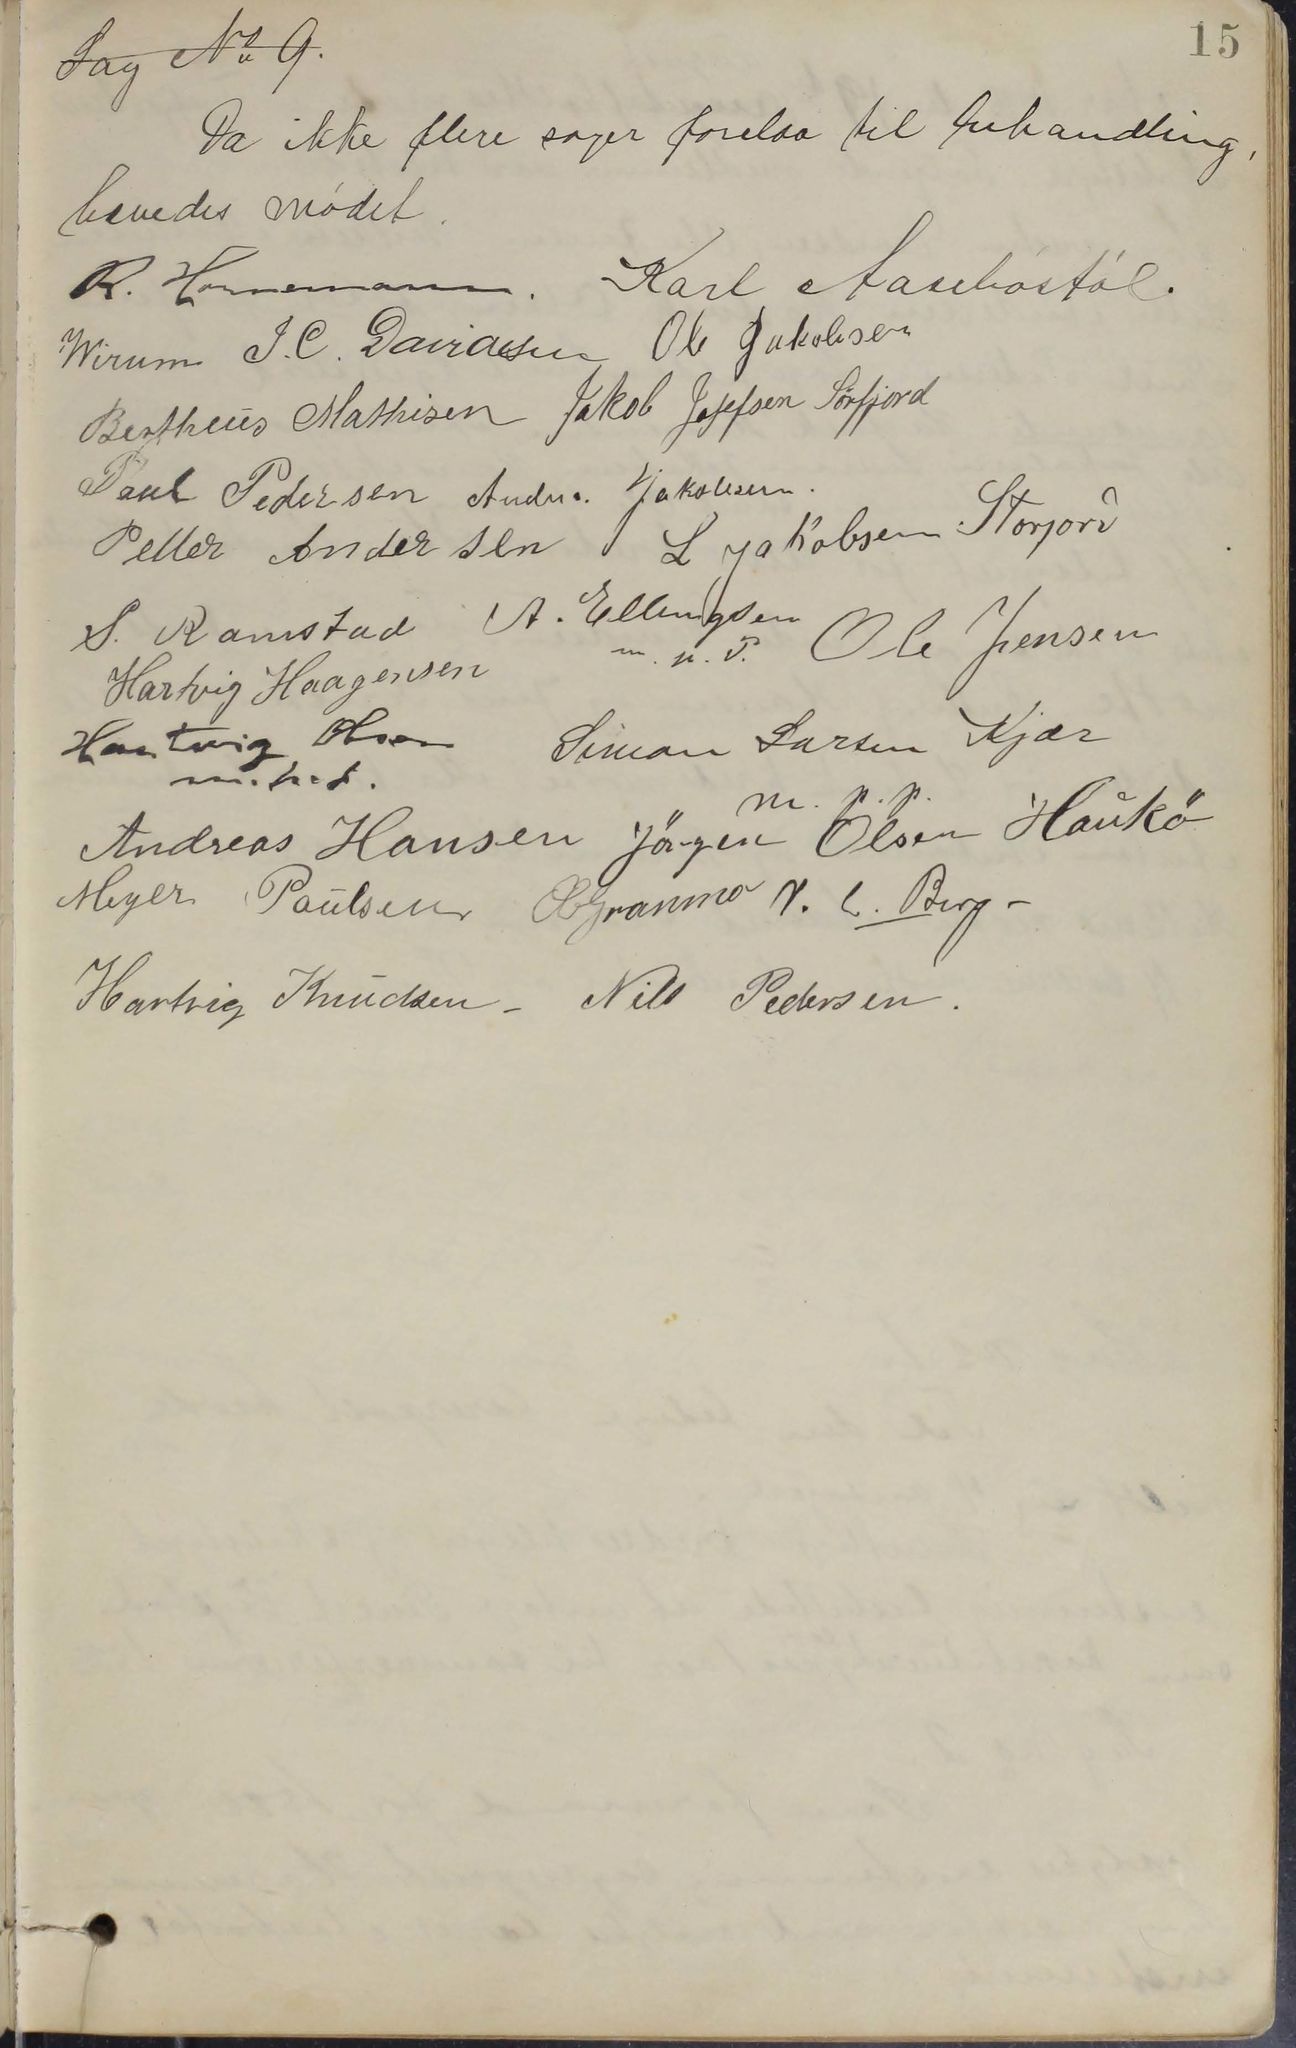 15
Sag No 9.
Da ikke flere sager forelaa til behandling,
hævedes mødet.
R. Hornemann. Karl Aasebøstøl.
Wirum J. C. Davidsen Ole Jakobsen
Bertheus Mathisen Jakob Josefsen Sörfjord
Paul Pedersen Andr. Jakobsen.
Petter Andersen L Jakobsen Storjord
S. Ramstad A. Ellingsen Ole Jensen
m. p. P.
Hartvig Haagensen
Hartvig Olsen Simon Larsen Kjær
m. p. p.
Andreas Hansen Jörgen Olsen Haukö
Meyer Paulsen Granmo C. Berg -
Hartvig Knudsen - Nils Pedersen.